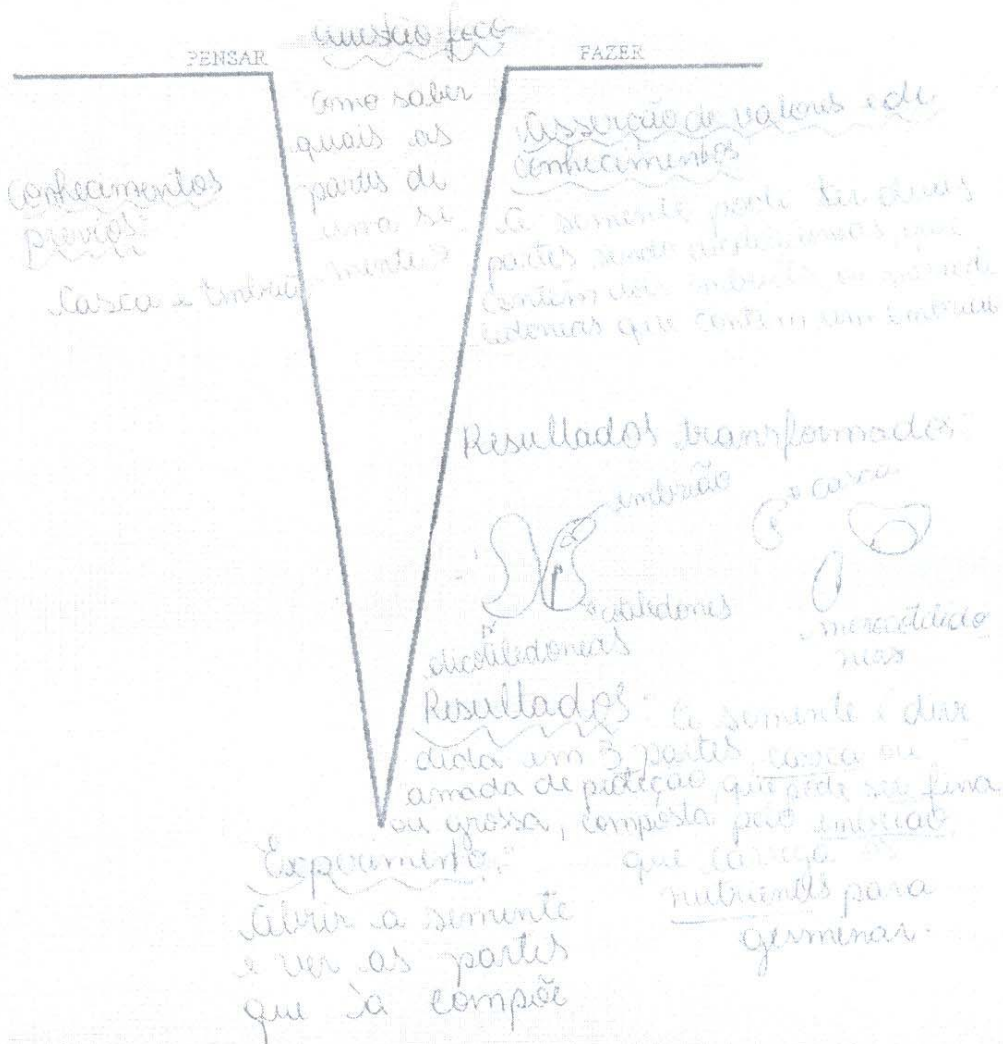 PENSAR
questão foco
FAZER
Como saber
quais as
partes de
uma se
mente?
Conhecimentos
prévios:
Casca e Embrião
Asserção de valores e de
conhecimentos
A semente pode ter duas
partes sendo
contém
que contém um embrião
Resultados transformados:
embrião
casca
cotiledones
dicotiledoneas
Resultados: A semente é divi
dida em 3 partes, casca ou
amada de proteção, que pode ser fina
ou grossa, composta pelo embrião
que carrega os
nutrientes para
germinar.
Experimento:
Abrir a semente
e ver as partes
que à compõe